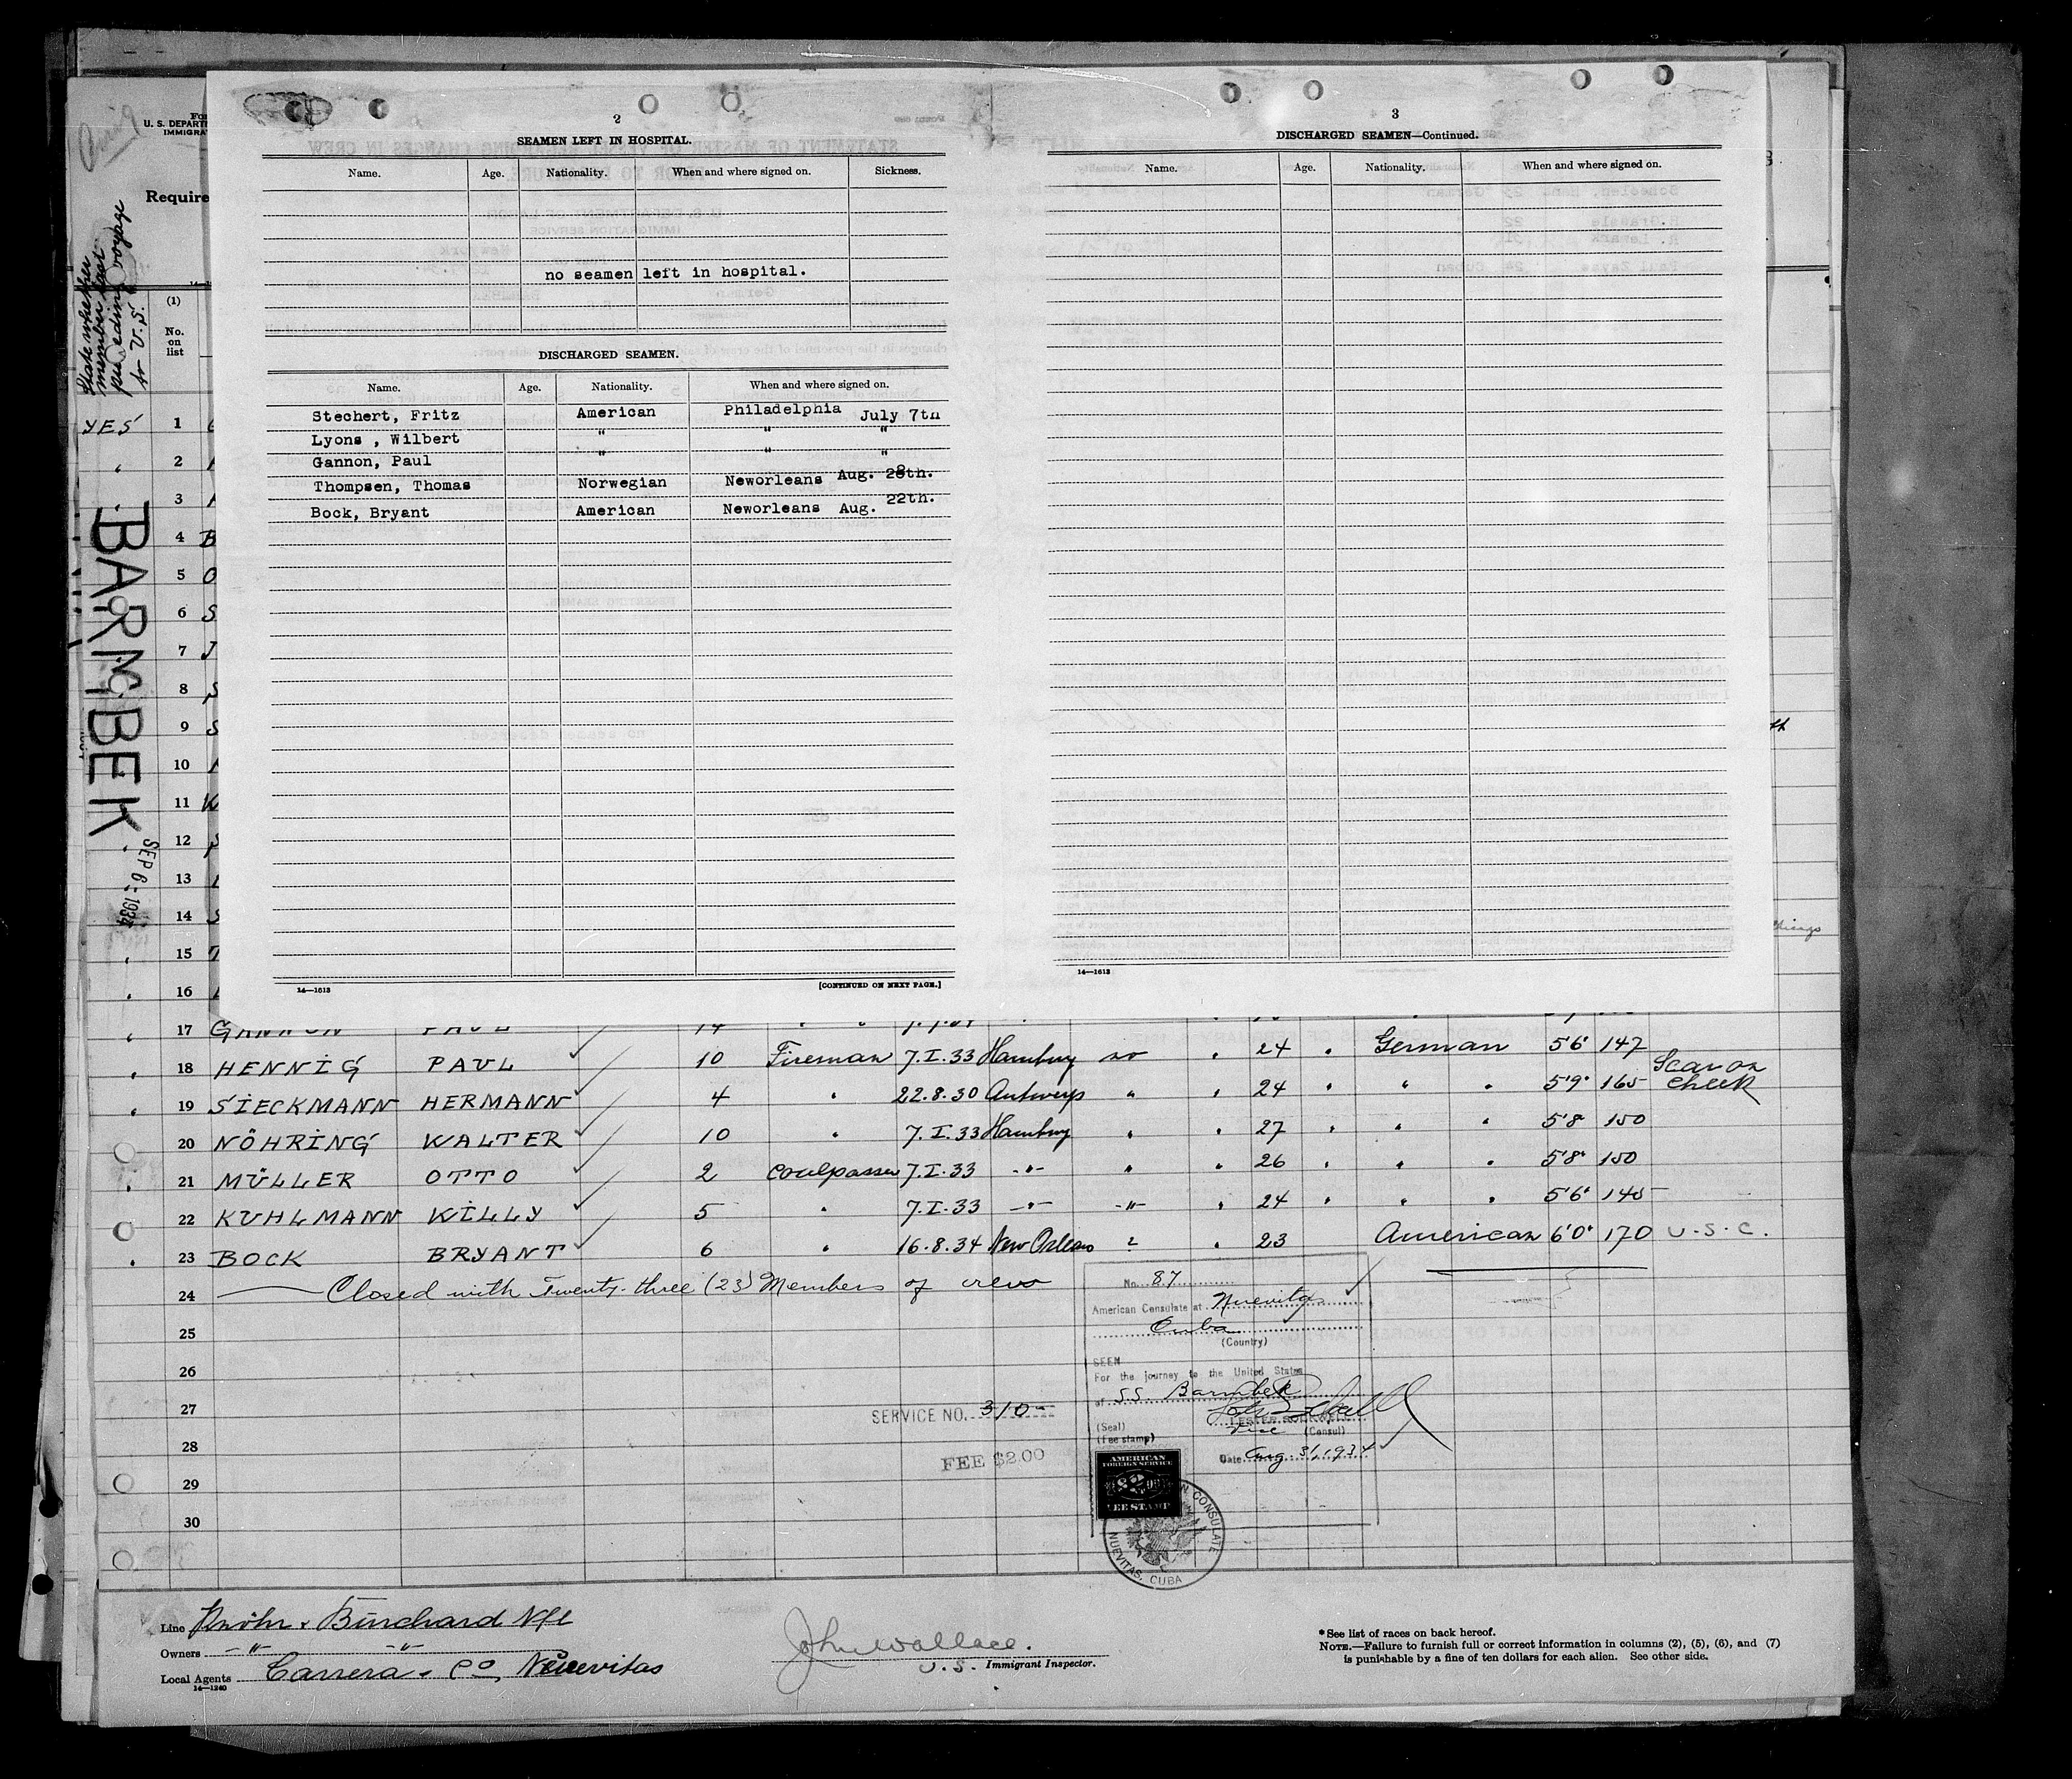 2
SEAMEN LEFT IN HOSPITAL.
Name. Age. Nationality. When and where signed on. Sickness.
no seamen left in hospital.
DISCHARGED SEAMEN.
Name. Age. Nationality. When and where signed on.
Stechert, Fritz American Philadelphia July 7th
Lyons , Wilbert " " "
Gannon, Paul " " "
Thompsen, Thomas Norwegian Neworleans Aug. 28th.
Bock, Bryant American Neworleans Aug. 22th.
14—1613 [CONTINUED ON NEXT PAGE.]
3
DISCHARGED SEAMEN—Continued.
Name. Age. Nationality. When and where signed on.
14—1613
U. S. DEPART
IMMIGRA
Require
State whether
member last
preceding voyage
to U.S.
(1)
No.
on
list
YES 1
" 2
3
4 B
5 O
6 S
7 J
8 S
9 S
10
11 K
12 S
13
14 S
15 T
16
BARMBEK
SEP 6 - 1934
17 GANNON PAUL 14 " " 7.7.34
18 HENNIG PAUL 10 Fireman 7.I.33 Hamburg no " 24 " German 5'6" 147
19 SIECKMANN HERMANN 4 " 22.8.30 Antwerp " " 24 " " " 5'9" 165 Scar on cheek
20 NÖHRING WALTER 10 " 7.I.33 Hamburg " " 27 " " " 5'8 150
21 MÜLLER OTTO 2 coalpasser 7.I.33 -"- " " 26 " " " 5'8" 150
22 KUHLMANN WILLY 5 " 7.I.33 -"- -"- " 24 " " " 5'6" 145
23 BOCK BRYANT 6 " 16.8.34 New Orleans ? " 23 American 6'0" 170 U.S.C.
24 Closed with Twenty-three (23) Members of crew
25
26
27
28
29
30
No. 87
American Consulate at Nuevitas
Cuba
(Country)
SEEN
For the journey to the United States
of S.S. Barmbek
LESTER ROCKWELL
(Seal) Vice (Consul)
(Fee stamp)
Date Aug. 31, 1934
SERVICE NO. 310-
FEE $2.00
AMERICAN
FOREIGN SERVICE
FEE STAMP
AMERICAN CONSULATE
NUEVITAS, CUBA
Line Knöhr & Burchard Nfl
Owners -"- -"-
Local Agents Carrera & Co, Nuevitas
14—1240
John Wallace.
U.S. Immigrant Inspector.
*See list of races on back hereof.
NOTE.—Failure to furnish full or correct information in columns (2), (5), (6), and (7)
is punishable by a fine of ten dollars for each alien. See other side.